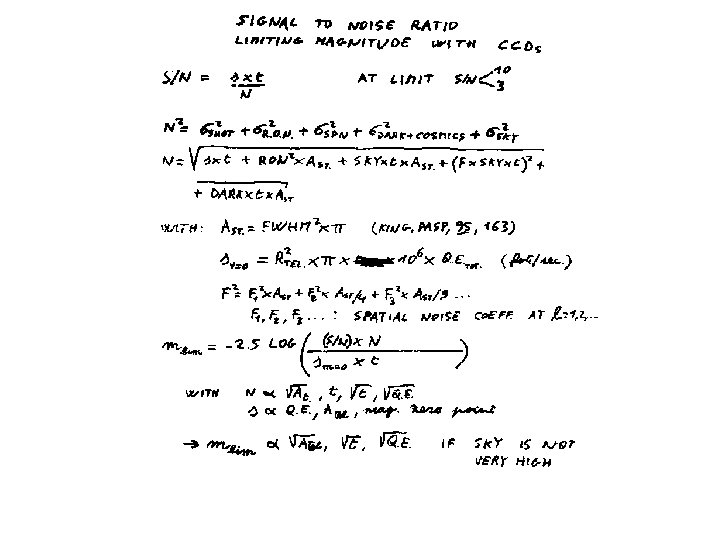 SIGNAL TO NOISE RATIO
LIMITING MAGNITUDE WITH CCDs
S/N = s x t / N AT LIMIT S/N < 10 3
N² = σ²SHOT + σ²R.O.N. + σ²SPN + σ²DARK+COSMICS + σ²SKY
N = √ s x t + RON² x A ST. + SKY x t x A ST. + (F x SKY x t)² +
+ DARK x t x A ST
WITH: A ST. = FWHM² x π (KING, PASP, 95, 163)
s m=0 = R² TEL. x π x 10⁶ x Q.E. TOT. (phot/sec.)
F² = F₁² x A ST + F₂² x A ST/4 + F₃² x A ST/9 ...
F₁, F₂, F₃ ... : SPATIAL NOISE COEFF. AT l=1,2,...
m lim = -2.5 LOG ( (S/N) x N / s m=0 x t )
WITH N ∝ √A t., t, √t, √Q.E.
s ∝ Q.E., A TEL, mag. zero point
→ m lim ∝ √A TEL, √t, √Q.E. IF SKY IS NOT
VERY HIGH